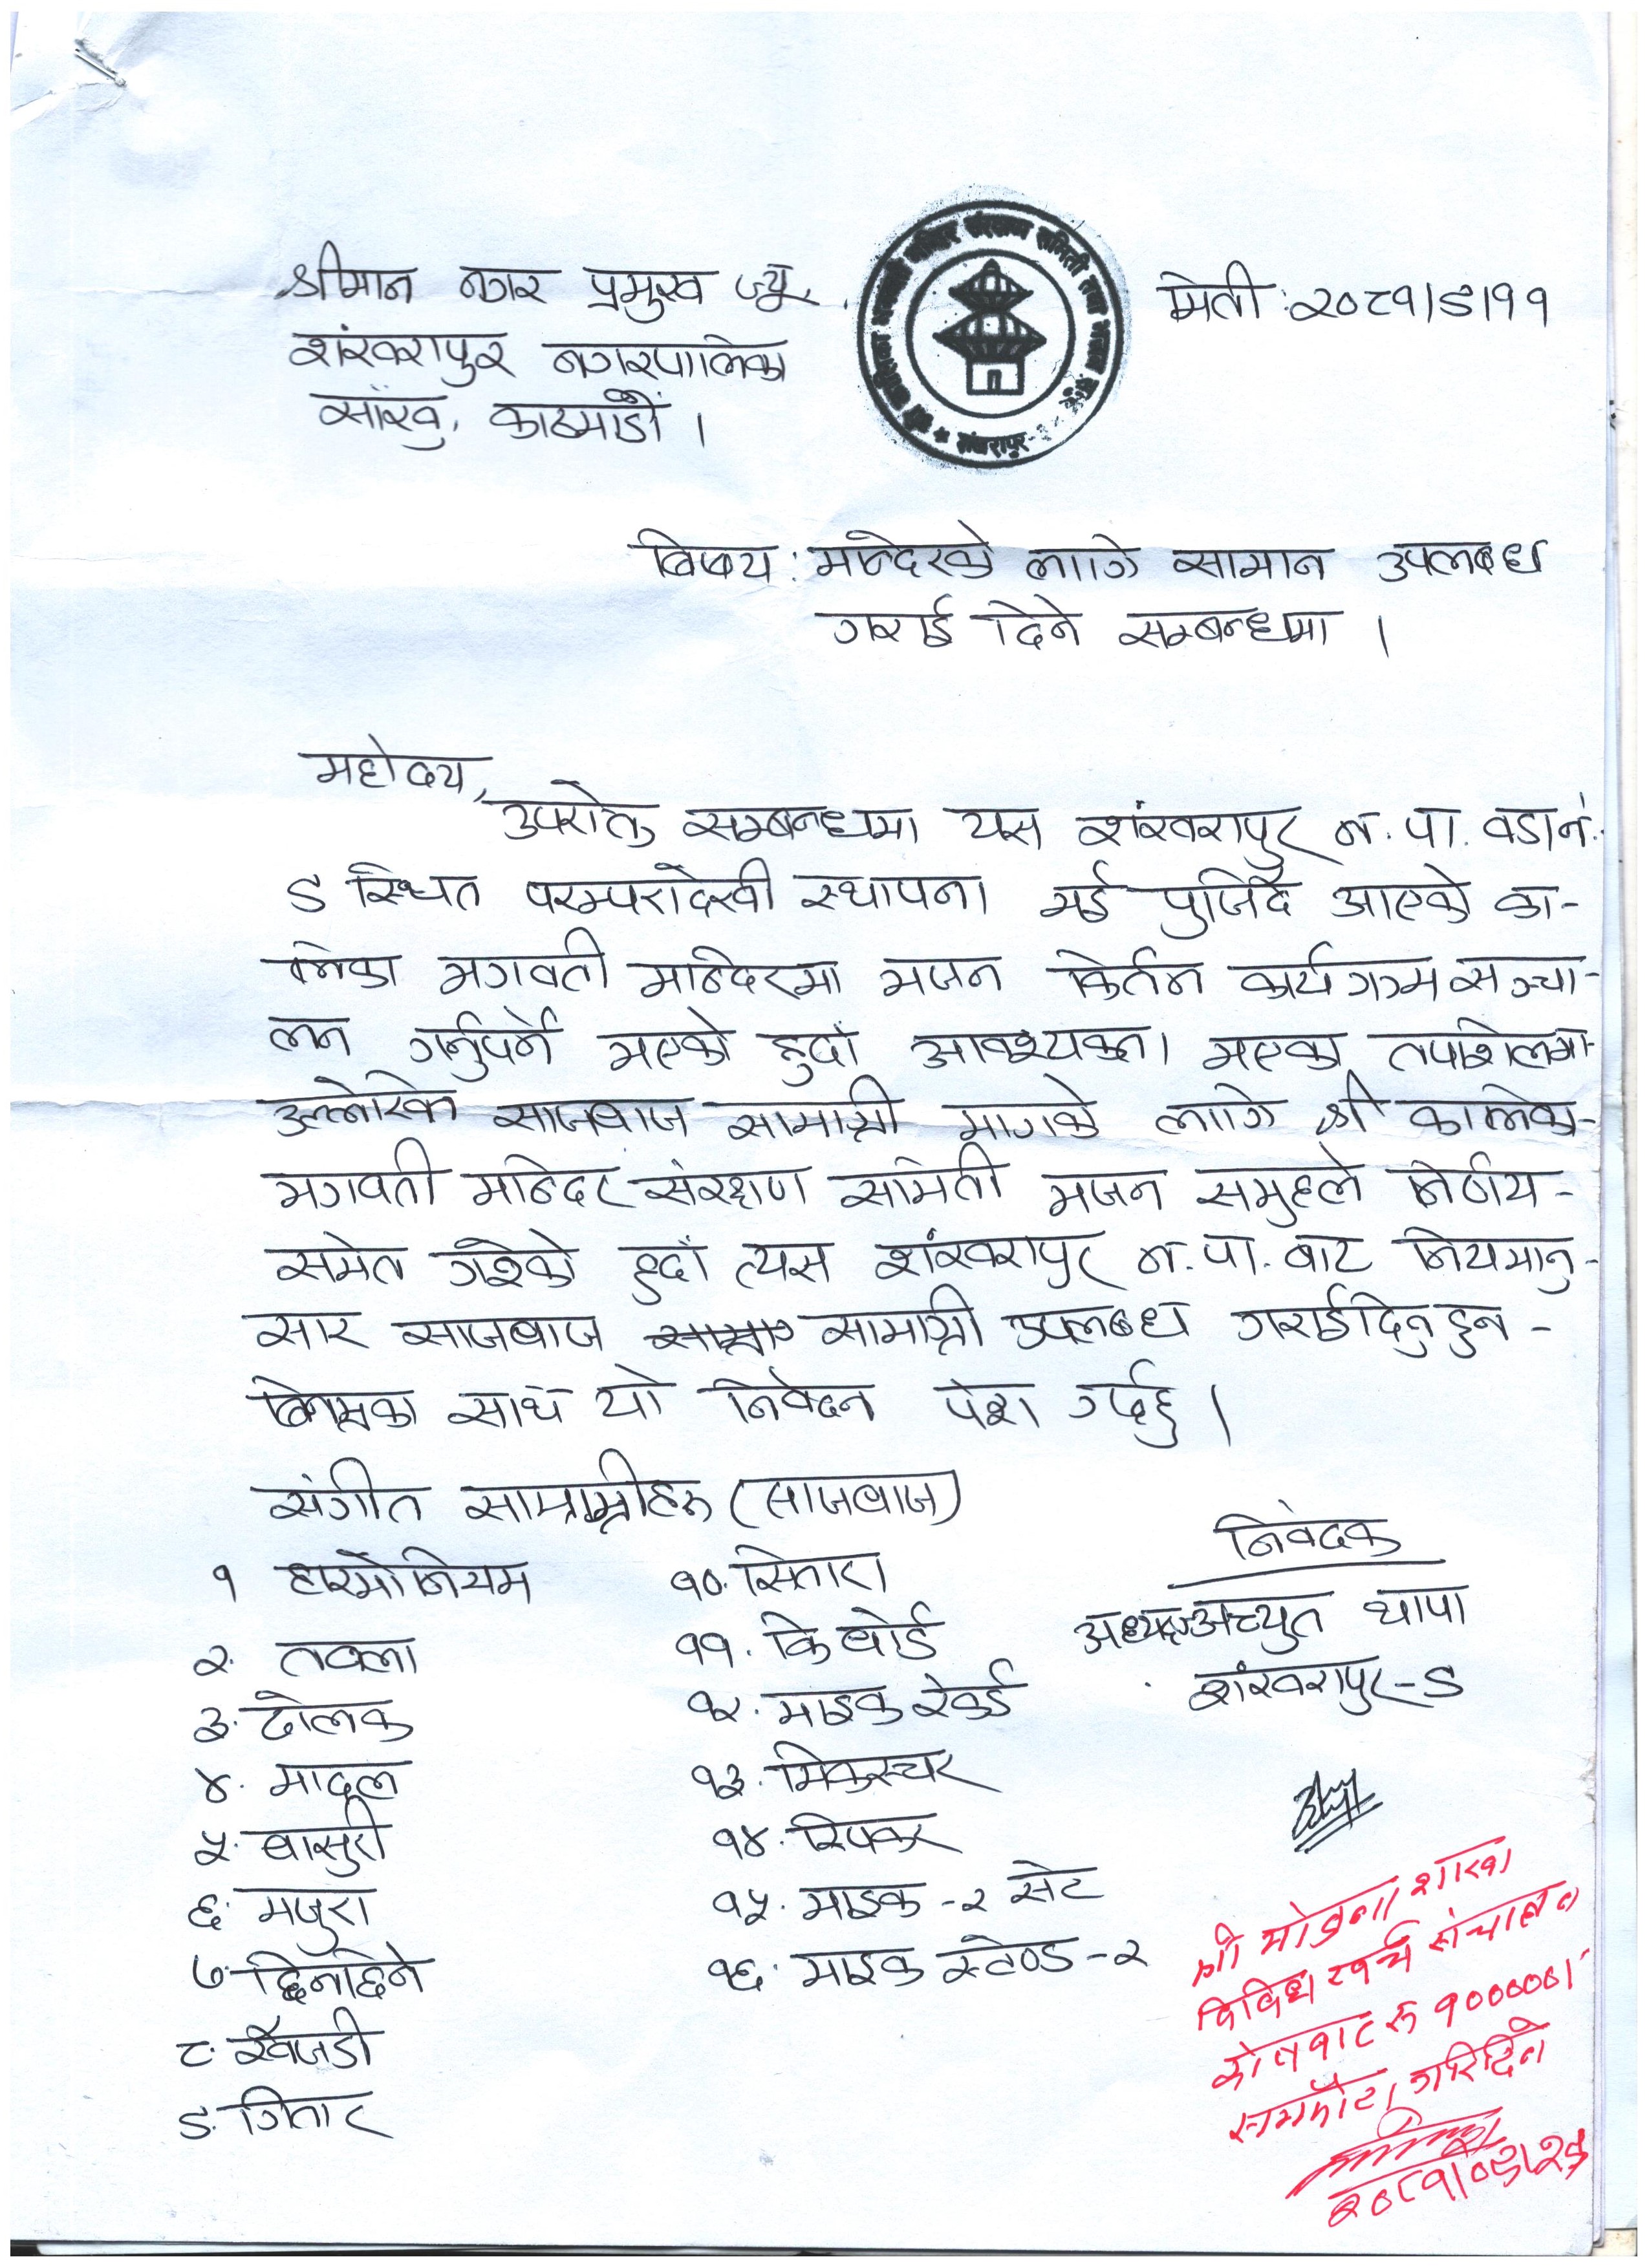 श्रीमान नगर प्रमुख ज्यू,
शंखरापुर नगरपालिका
सांखु, काठमाडौं ।
मिती: २०८१।९।११
शंखरापुर-
बिषय: मन्दिरको लागि सामान उपलब्ध
गराई दिने सम्बन्धमा ।
महोदय,
उपरोक्त सम्बन्धमा यस शंखरापुर न.पा. वडा नं.
९ स्थित परम्परादेखी स्थापना भई पुजिदै आएको का-
लिका भगवती मन्दिरमा भजन किर्तन कार्यक्रम सञ्चा-
लन गर्नुपर्ने भएको हुदाँ आवश्यकता भएका तपशिलमा
उल्लेखित साजबाज सामाग्री मागको लागि श्री कालिका-
भगवती मन्दिर संरक्षण समिती भजन समुहले निर्णय-
समेत गरेको हुदाँ त्यस शंखरापुर न.पा. बाट नियमानु-
सार साजबाज सामाग्री उपलब्ध गराईदिनुहुन-
बिनम्रका साथ यो निवेदन पेश गर्दछु ।
संगीत सामाग्रीहरु (साजबाज)
१ हारमोनियम
२. तबला
३. ढोलक
४. मादल
५. बासुरी
६. मजुरा
७. छिनाछिने
८. खैजडी
९. गितार
१०. सितारा
११. किबोर्ड
१२. माइक रेकर्ड
१३. मिक्स्चर
१४. स्पिकर
१५. माइक -२ सेट
१६. माइक स्टेण्ड -२
निवेदक
अध्यक्ष अच्युत थापा
शंखरापुर-९
श्री योजना शाखा
विविध खर्च संचालन
स्रोतबाट रु १०००००।
सम्झौता गरिदिने
२०८१।०९।२५